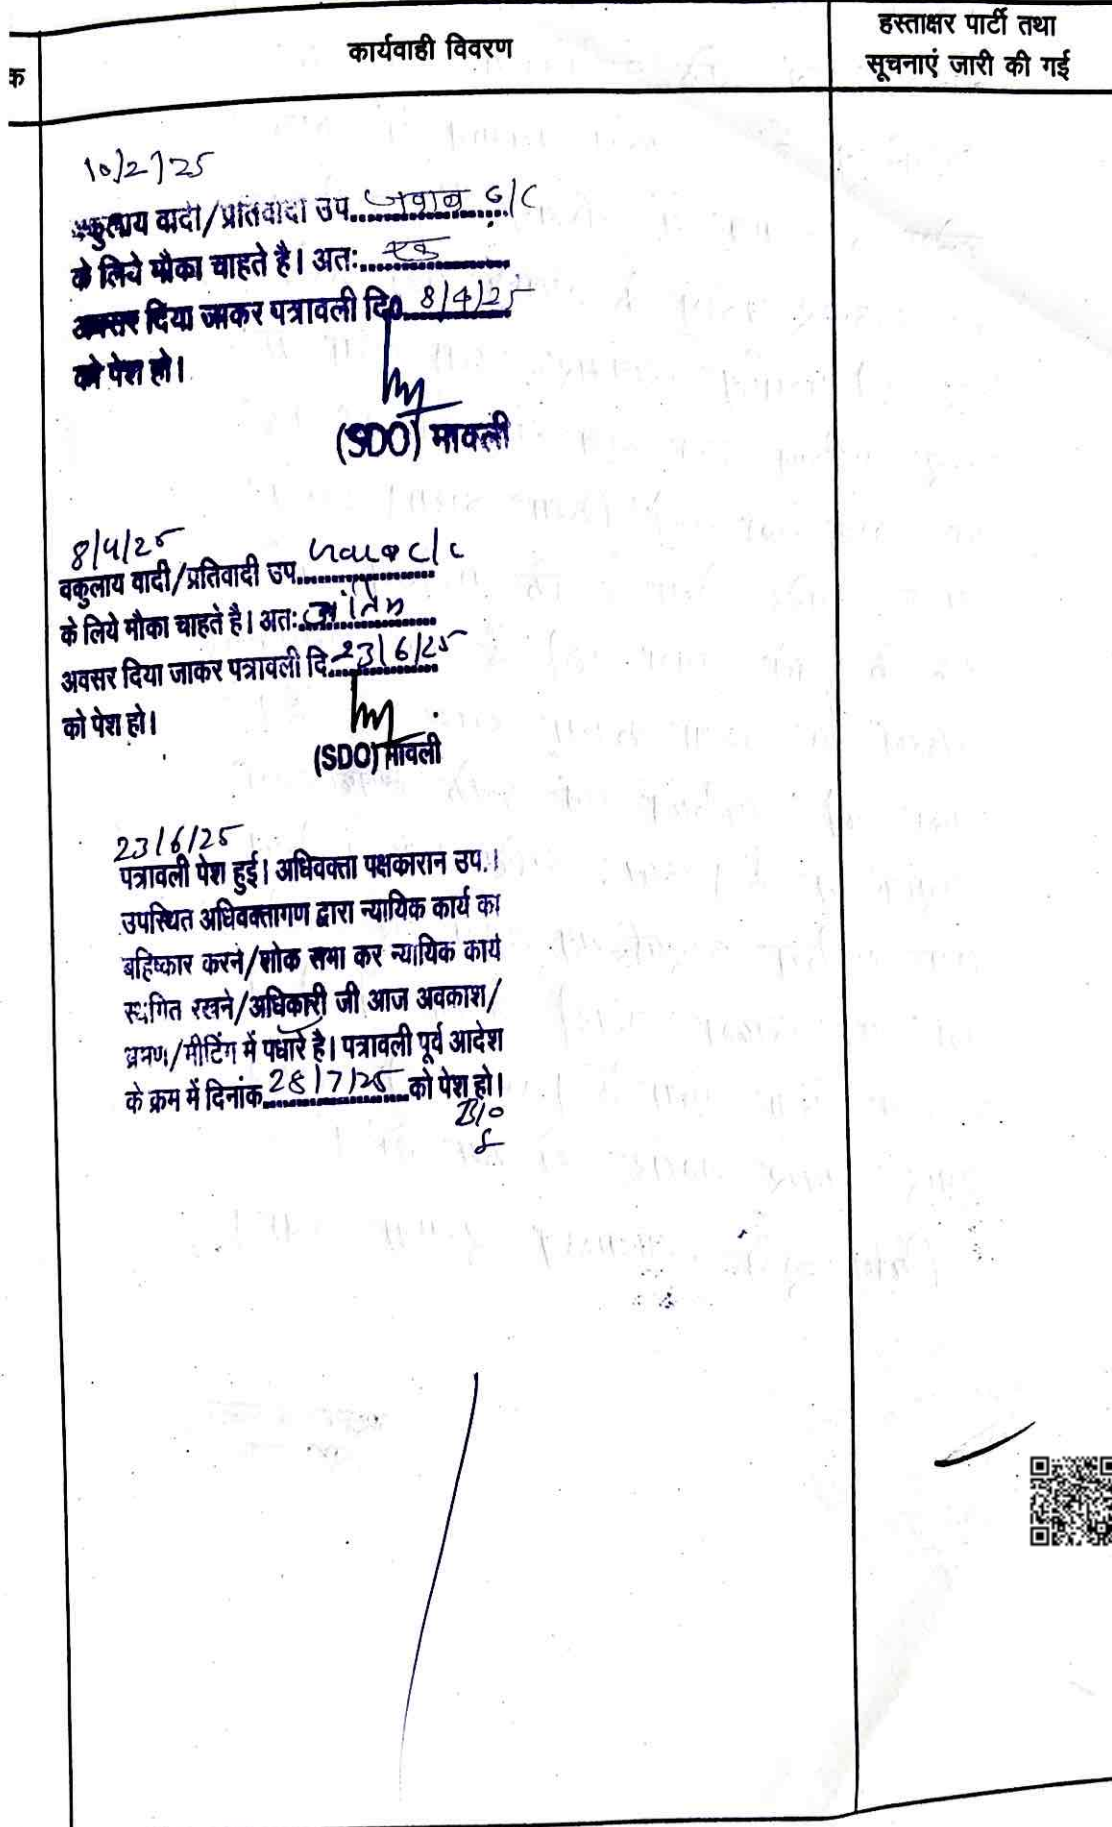 क
कार्यवाही विवरण
हस्ताक्षर पार्टी तथा
सूचनाएं जारी की गई
10/2/25
वकुलाय वादी/प्रतिवादी उप. जवाब C/C
के लिये मौका चाहते है। अतः एक
अवसर दिया जाकर पत्रावली दि0 8/4/25
को पेश हो।
(SDO) मावली
8/4/25
वकुलाय वादी/प्रतिवादी उप. जवाब c/c
के लिये मौका चाहते है। अतः अंतिम
अवसर दिया जाकर पत्रावली दि. 23/6/25
को पेश हो।
(SDO) मावली
23/6/25
पत्रावली पेश हुई। अधिवक्ता पक्षकारान उप.।
उपस्थित अधिवक्तागण द्वारा न्यायिक कार्य का
बहिष्कार करने/शोक सभा कर न्यायिक कार्य
स्थगित रखने/अधिकारी जी आज अवकाश/
भ्रमण/मीटिंग में पधारे है। पत्रावली पूर्व आदेश
के क्रम में दिनांक 28/7/25 को पेश हो।
B/o